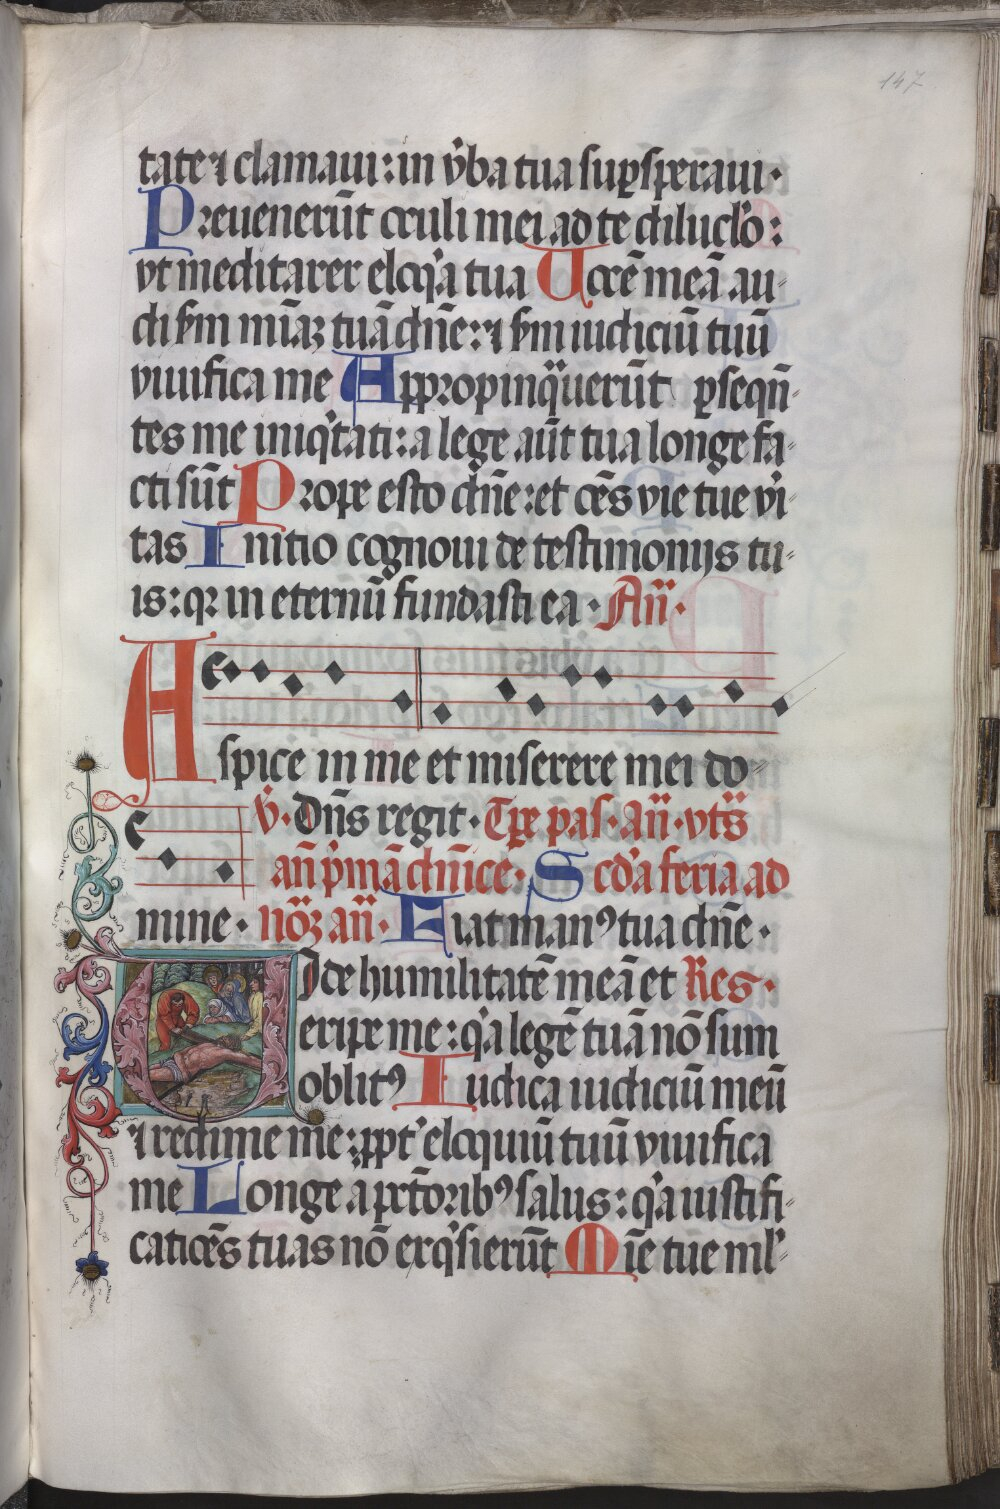 147
tate ⁊ clamaui: in v̾ba tua suꝑsperaui·
Preuenerūt oculi mei ad te diluclo̾:
vt meditarer eloq̾a tua Uocē meā au-
di ẜm mīaꝫ tuā dn̄e: ⁊ ẜm iudiciū tuū
viuifica me Appropinq̈uerūt ꝑseqn̄-
tes me iniq̾tati: a lege aūt tua longe fa-
cti sūt Prope esto dn̄e: et oēs vie tue v̾i-
tas Initio cognoui de testimonijs tu-
is: qꝛ in eternū fundasti ea· An̄·
Aspice in me et miserere mei do-
v̾· Dn̄s regit· Tꝑe pas· an̄· vts̄
an̄ p̾mā dn̄ice· Scd̾a feria ad
mine· noꝝ an̄· Fiat manꝰ tua dn̄e·
Uide humilitatē meā et Res·
eripe me: q̾a legē tuā nō sum
oblitꝰ Iudica iudiciū meū
⁊ redime me: ꝓpt̾ eloquiū tuū viuifica
me Longe a pctōribꝰ salus: q̾a iustifi-
catiōes tuas nō exq̾sierūt Mīe tue ml̾-